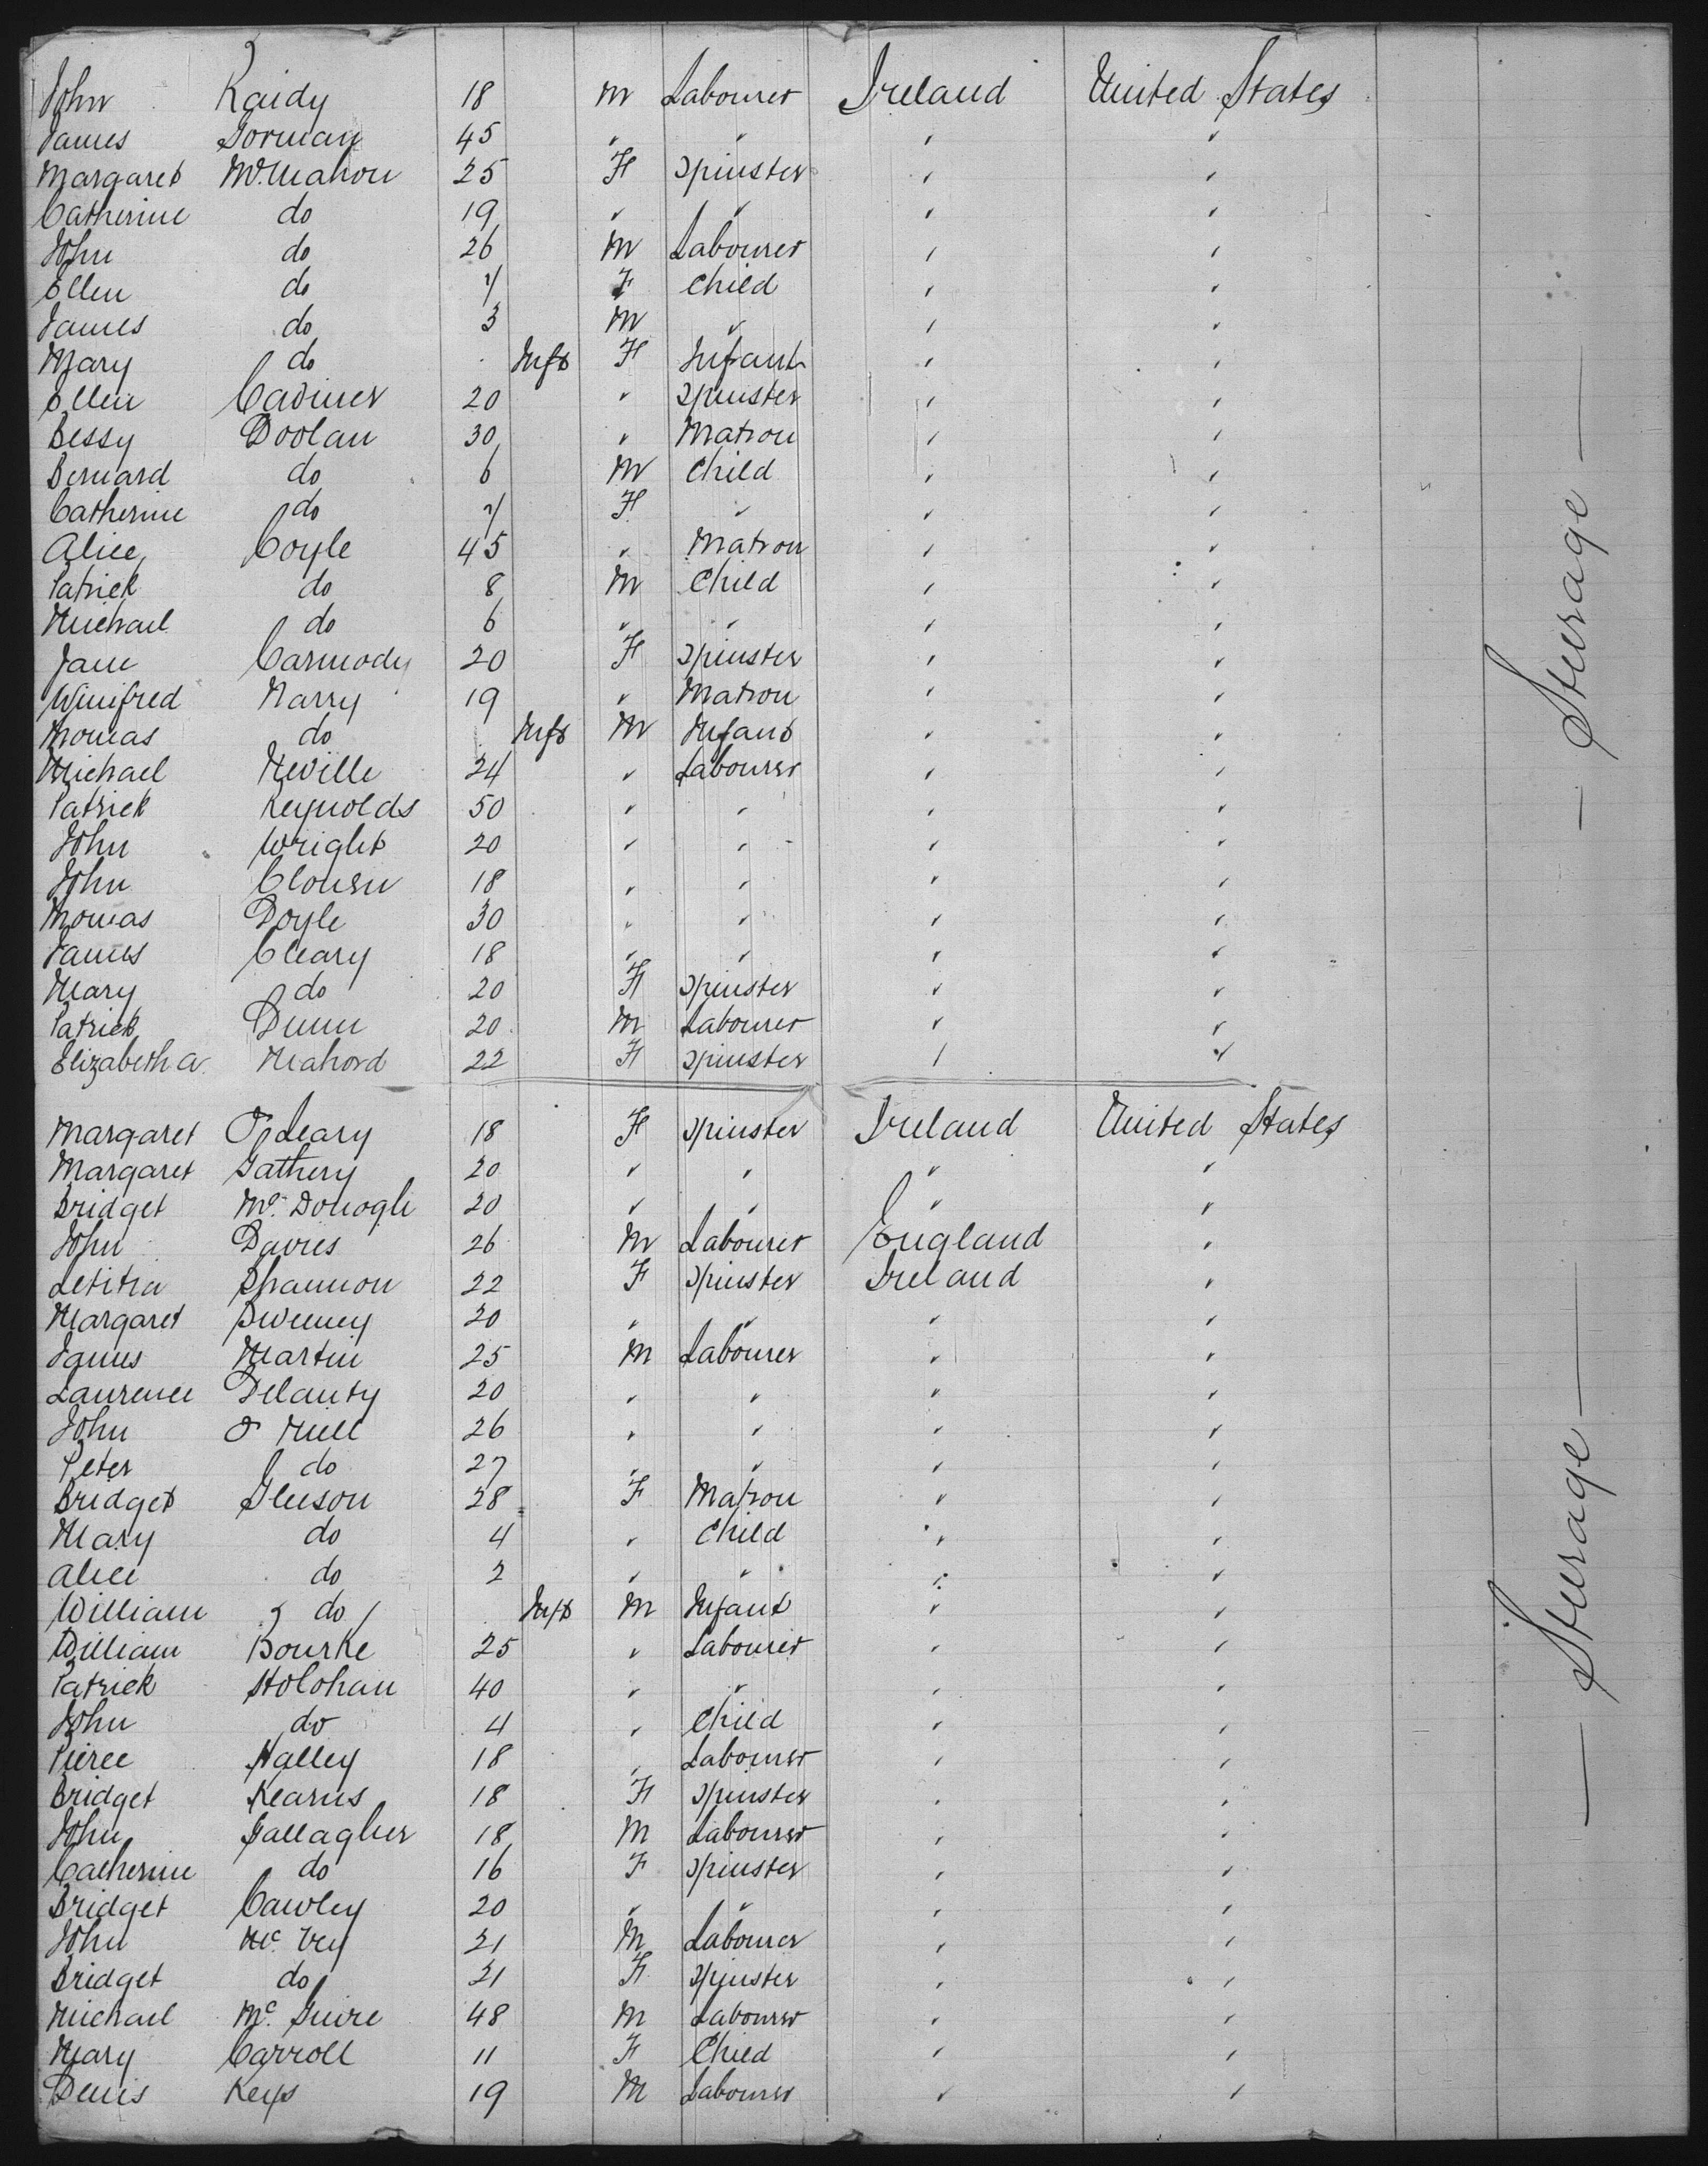 John Raidy 18 M Labourer Ireland United States
James Gorman 45 " " " "
Margaret McMahon 25 F Spinster " "
Catherine do 19 " " " "
John do 26 M Labourer " "
Ellen do 7 F Child " "
James do 3 M " " "
Mary do Inft F Infant " "
Ellen 20 " Spinster " "
Bessy Doolan 30 " Matron " "
Bernard do 6 M Child " "
Catherine do 7 F " " "
Alice Coyle 45 " Matron " "
Patrick do 8 M Child " "
Michael do 6 " " " "
Jane Carmody 20 F Spinster " "
Winifred Narry 19 " Matron " "
Thomas do Inft M Infant " "
Michael Neville 24 " Labourer " "
Patrick Reynolds 50 " " " "
John Wright 20 " " " "
John 18 " " " "
Thomas Doyle 30 " " " "
James Cleary 18 " " " "
Mary do 20 F Spinster " "
Patrick Dunn 20 M Labourer " "
Elizabeth A. 22 F Spinster " "
Steerage
Margaret O'Leary 18 F Spinster Ireland United States
Margaret 20 " " " "
Bridget Mc Donogh 20 " " " "
John Davies 26 M Labourer England "
Letitia Shannon 22 F Spinster Ireland "
Margaret Sweeney 20 " " " "
James Martin 25 M Labourer " "
Laurence Delanty 20 " " " "
John O Neill 26 " " " "
Peter do 27 " " " "
Bridget Gleeson 28 F Matron " "
Mary do 4 " Child " "
Alice do 2 " " " "
William do Inft M Infant " "
William Bourke 25 " Labourer " "
Patrick Holohan 40 " " " "
John do 4 " Child " "
Pierce Halley 18 " Labourer " "
Bridget Kearns 18 F Spinster " "
John Gallagher 18 M Labourer " "
Catherine do 16 F Spinster " "
Bridget Cawley 20 " " " "
John Mc Vey 21 M Labourer " "
Bridget do 21 F Spinster " "
Michael Mc Guire 48 M Labourer " "
Mary Carroll 11 F Child " "
Denis Keys 19 M Labourer " "
Steerage